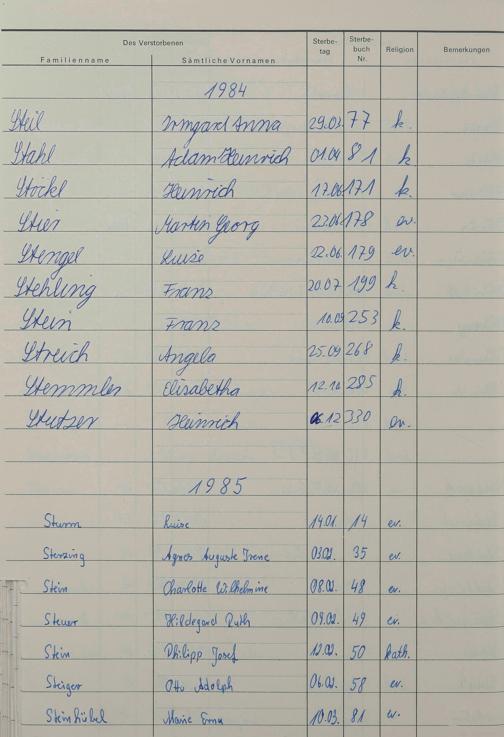 Des Verstorbenen
Familienname Sämtliche Vornamen Sterbe-tag Sterbe-buch Nr. Religion Bemerkungen
1984
Steil Irmgard Anna 29.03. 77 k.
Stahl Adam Heinrich 01.04 81 k
Stöckl Heinrich 17.06 171 k.
Stier Martin Georg 23.06 178 ev.
Stengel Luise 22.06. 179 ev.
Stehling Franz 20.07 199 k.
Stein Franz 10.09 253 k.
Streich Angela 25.09 268 k.
Stemmler Elisabetha 12.10 285 k.
Stutzer Heinrich 06.12 330 ev.
1985
Sturm Luise 14.01. 14 ev.
Sterzing Agnes Auguste Irene 03.02. 35 ev.
Stein Charlotte Wilhelmine 08.02. 48 ev.
Steuer Hildegard Ruth 09.02. 49 ev.
Stein Philipp Josef 12.02. 50 kath.
Steiger Otto Adolph 06.02. 58 ev.
Steinhübel Marie Erna 10.03. 81 ev.